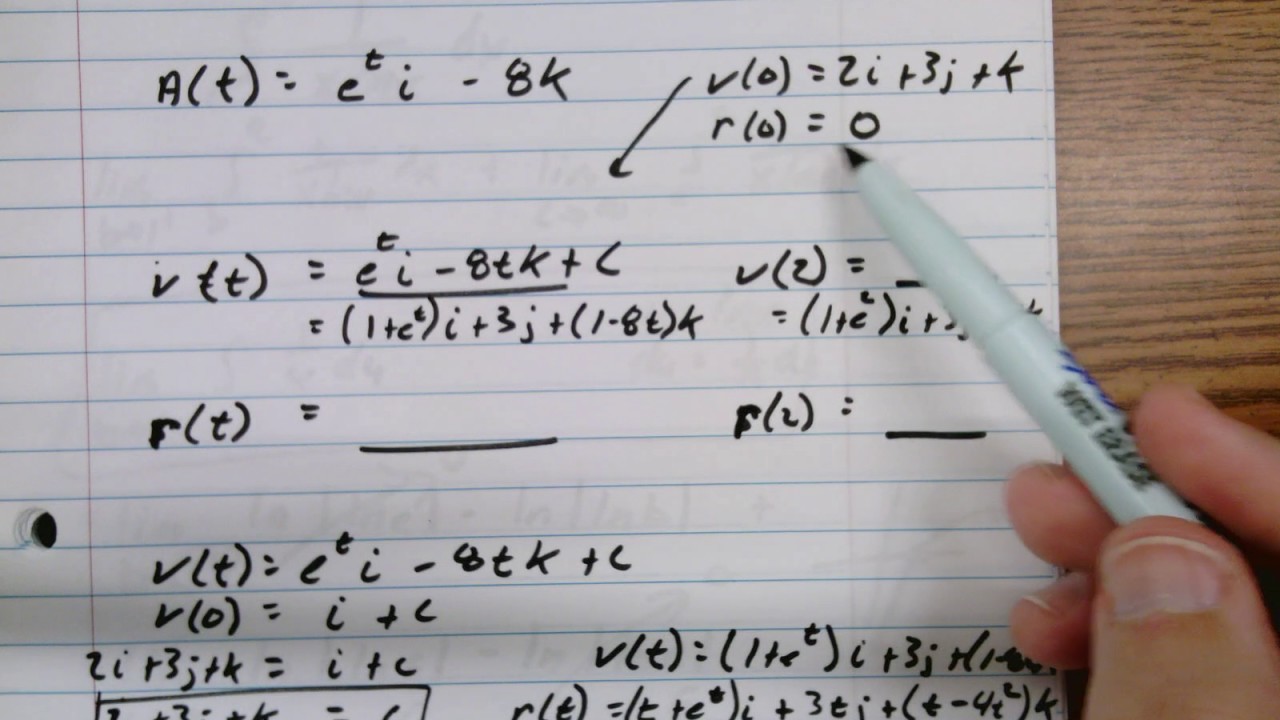 A(t) = e^t i - 8k
v(0) = 2i + 3j + k
r(0) = 0
v(t) = e^t i - 8tk + C
v(2) =
= (1+e^t)i + 3j + (1-8t)k
= (1+e^2)i +
r(t) =
r(2) =
v(t) = e^t i - 8tk + C
v(0) = i + C
2i + 3j + k = i + C
v(t) = (1+e^t)i + 3j + (1-
+ 3j + k = C
r(t) = (t+e^t)i + 3tj + (t-4t^2)k